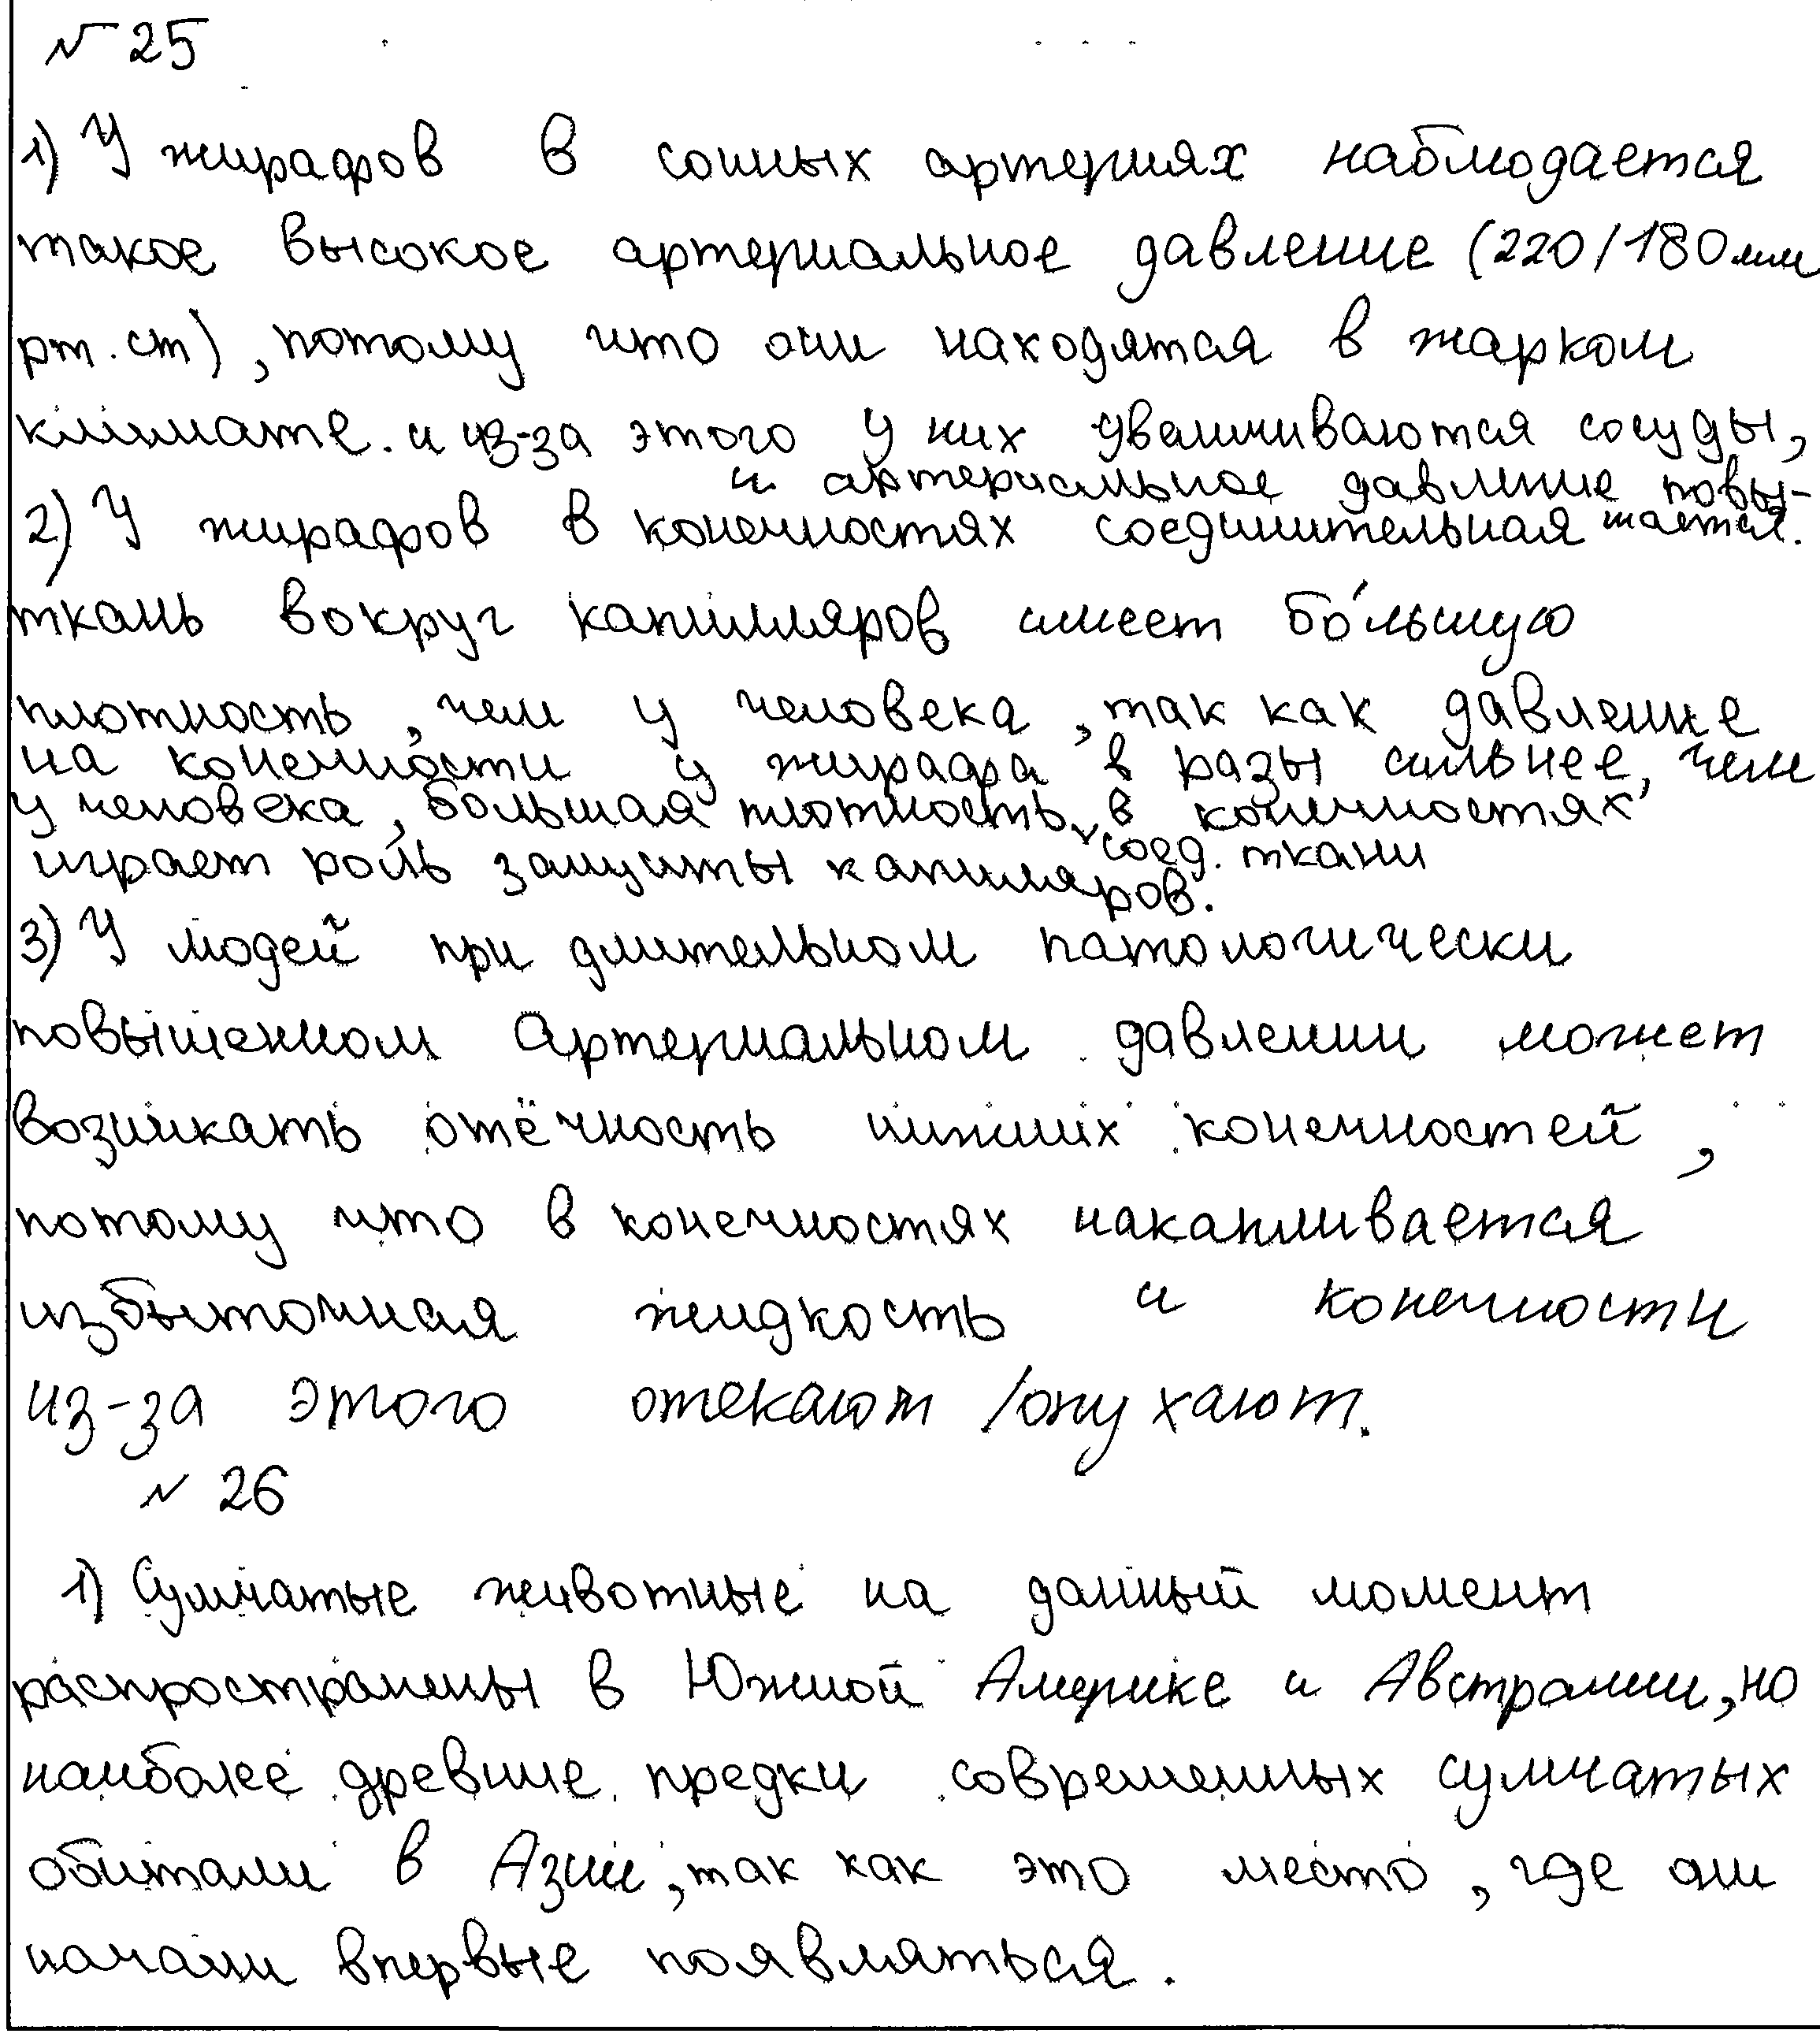 № 25
1) У жирафов в сонных артериях наблюдается
такое высокое артериальное давление (220/180 мм
рт. ст), потому что они находятся в жарком
климате. и из-за этого у них увеличиваются сосуды,
и артериальное давление повы-
шается.
2) У жирафов в конечностях соединительная
ткань вокруг капилляров имеет бо́льшую
плотность, чем у человека, так как давление
на конечности у жирафа в разы сильнее, чем
у человека, большая плотность в конечностях
соед. ткани
играет роль защиты капиляров.
3) У людей при длительном патологически
повышенном артериальном давлении может
возникать отёчность нижних конечностей,
потому что в конечностях накапливается
избыточная жидкость и конечности
из-за этого отекают /опухают.
№ 26
1) Сумчатые животные на данный момент
распространены в Южной Америке и Австралии, но
наиболее древние предки современных сумчатых
обитали в Азии, так как это место, где они
начали впервые появляться.